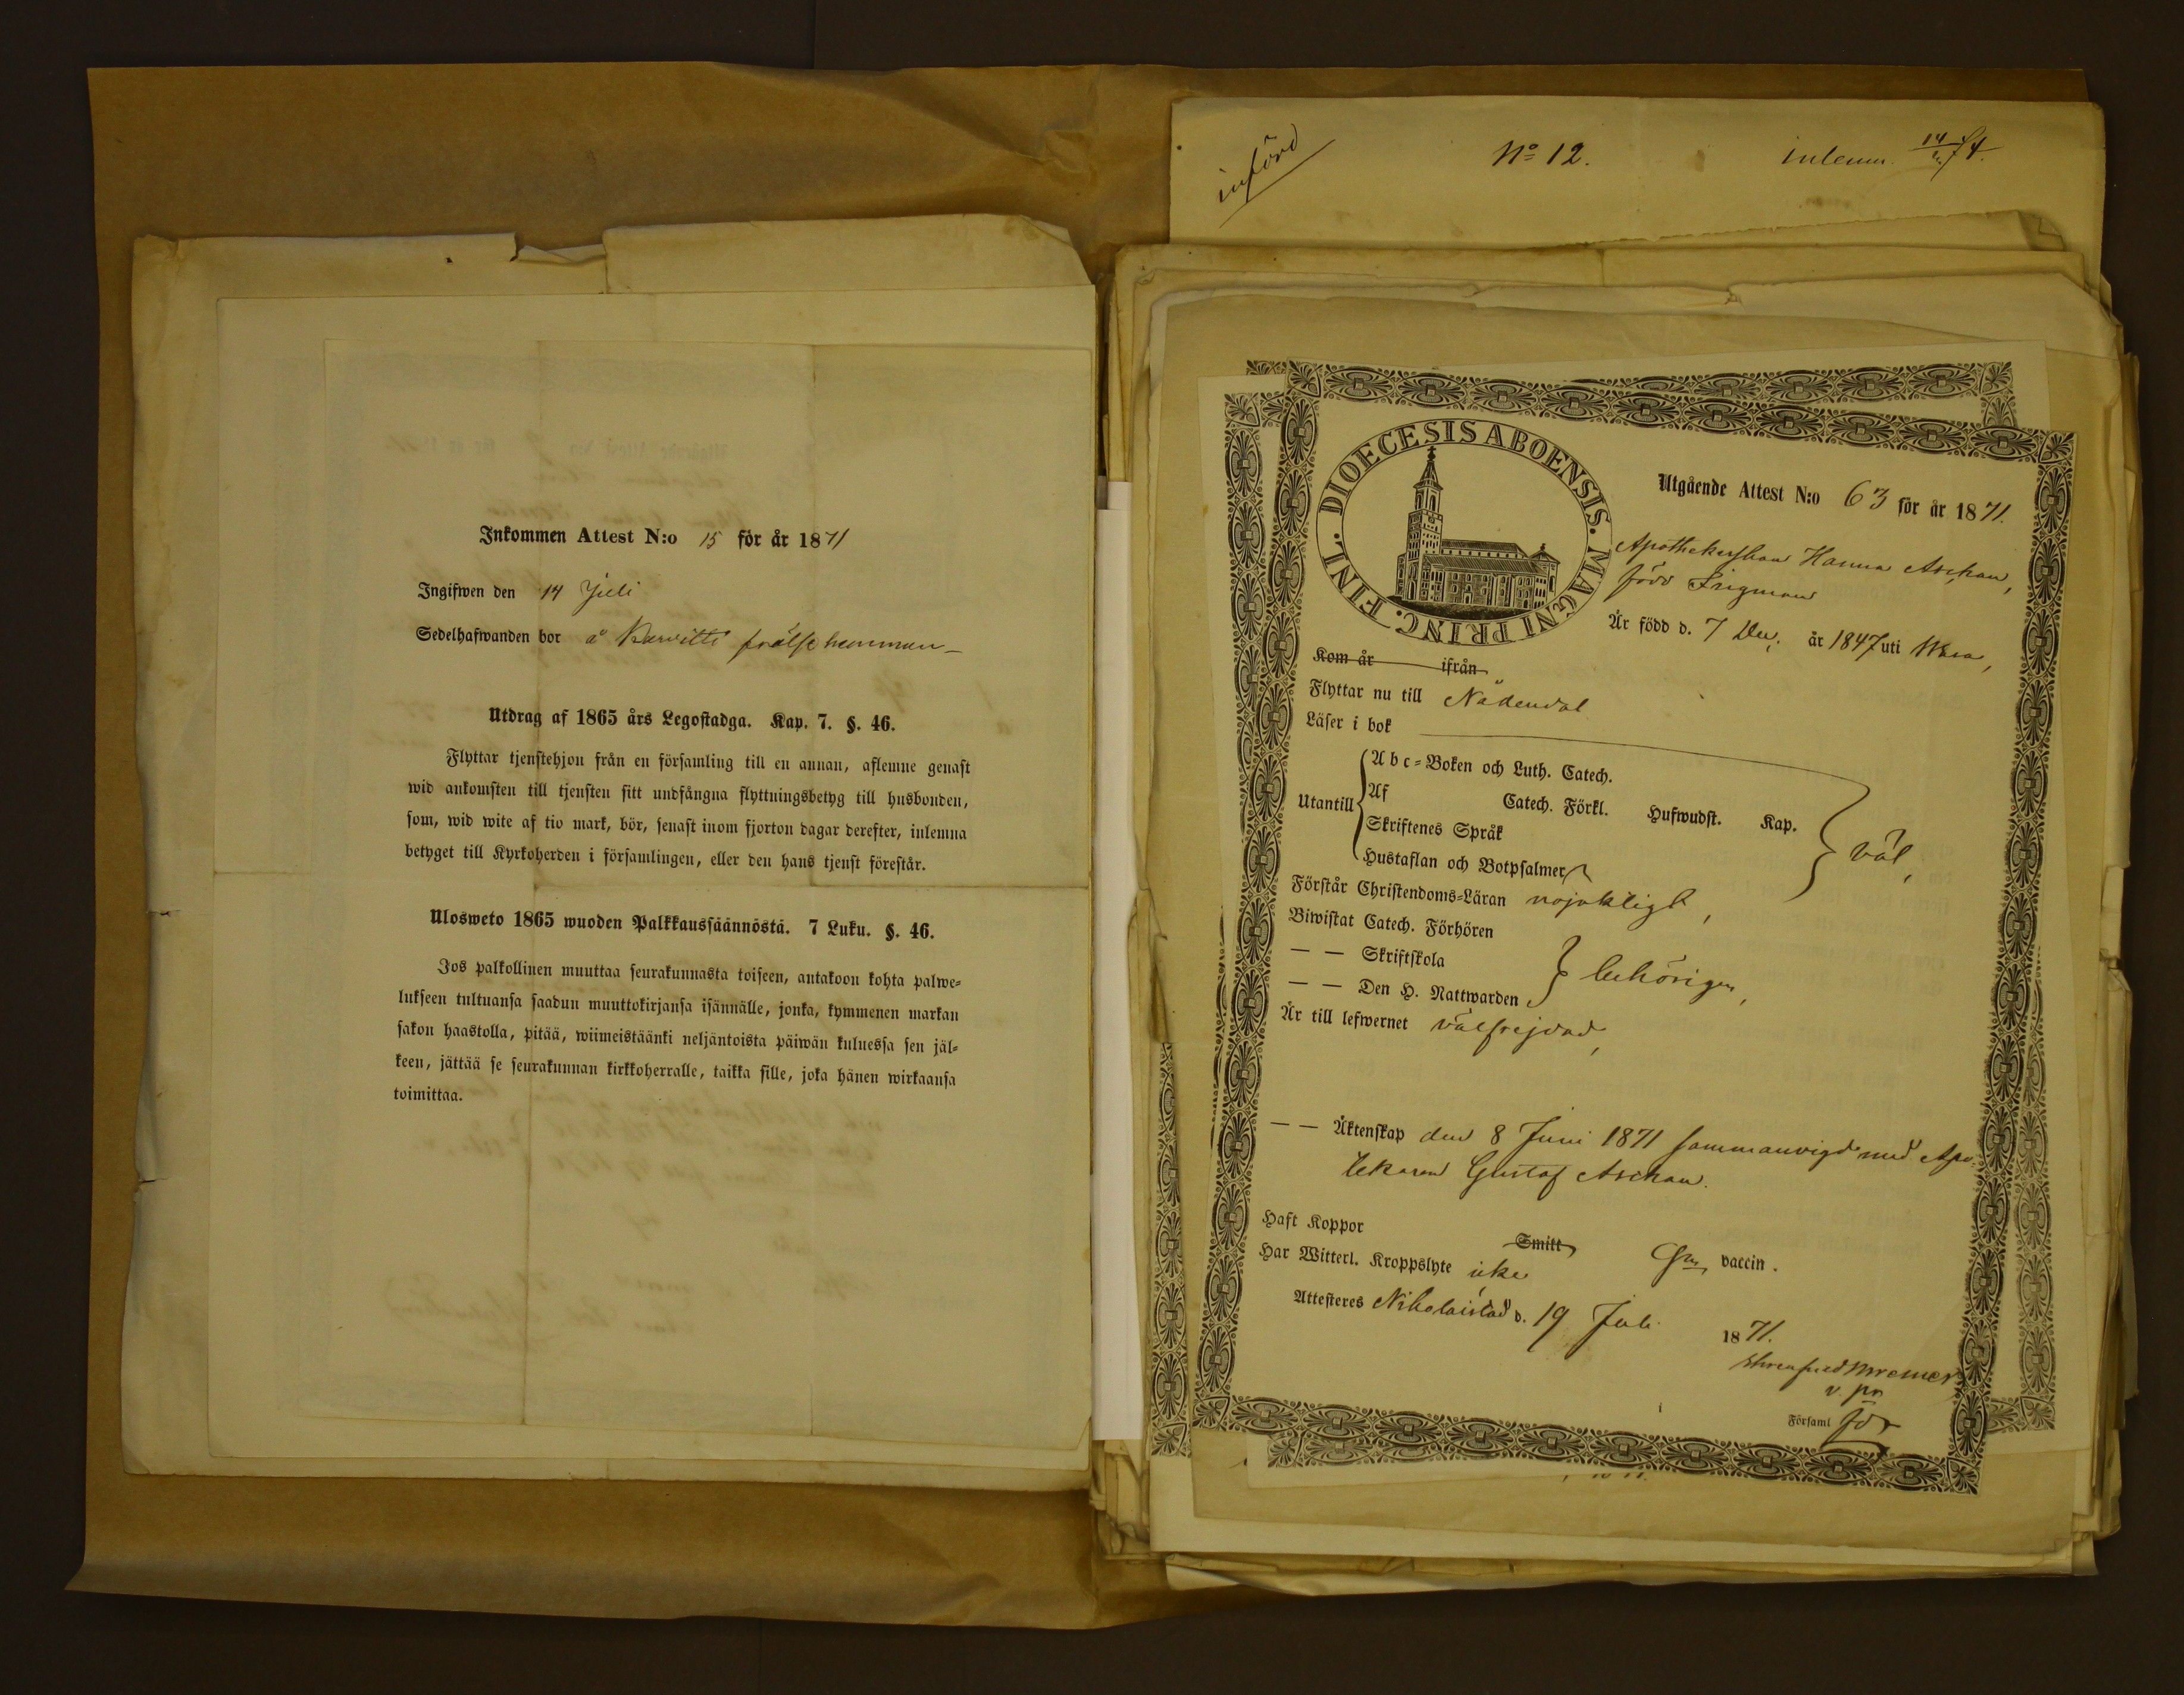 Inkommen Attest N:o 15 för år 1871
Ingifwen den 14 Juli
Sedelhafwanden bor å Karvitti frälse hemman
Utdrag af 1865 års Legostadga. Kap. 7. §. 46.
Flyttar tjenstehjon från en församling till en annan, aflemne genast
wid ankomsten till tjensten sitt undfångna flyttningsbetyg till husbonden,
som, wid wite af tio mark, bör, senast inom fjorton dagar derefter, inlemna
betyget till Kyrkoherden i församlingen, eller den hans tjenst förestår.
Ulosweto 1865 wuoden Palkkaussäännöstä. 7 Luku. §. 46.
Jos palkollinen muuttaa seurakunnasta toiseen, antakoon kohta palwe-
lukseen tultuansa saadun muuttokirjansa isännälle, jonka, kymmenen markan
sakon haastolla, pitää, wiimeistäänki neljäntoista päiwän kuluessa sen jäl-
keen, jättää se seurakunnan kirkkoherralle, taikka sille, joka hänen wirkaansa
toimittaa.
införd
No 12.
inlemn. 14/ 74.
DIOECESIS ABOENSIS. MAGNI PRINC. FINL.
Utgående Attest N:o 63 för år 1871.
Apothekerskan Hanna Aschan,
född Frigman
Är född d. 7 Dec. år 1847 uti Wasa,
Kom år ifrån
Flyttar nu till Nådendal
Läser i bok
Utantill
Abc-Boken och Luth. Catech.
Af Catech. Förkl. Hufwudst. Kap.
Skriftenes Språk
Hustaflan och Botpsalmer
väl,
Förstår Christendoms-Läran nöjaktligt,
Biwistat Catech. Förhören
— — Skriftskola
— — Den H. Nattwarden
behörigen,
Är till lefwernet välfrejdad,
— — Äktenskap den 8 Juni 1871 sammanvigd med Apo-
tekaren Gustaf Aschan.
Haft Koppor Smitt vaccin.
Har Witterl. Kroppslyte icke
Attesteras Nikolaistad d. 19 Juli 1871.
v. pr
Församl